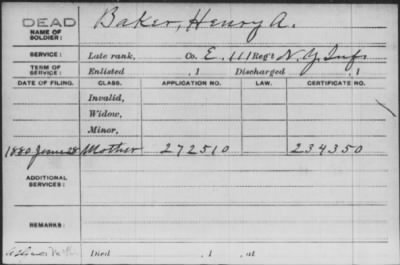 DEAD
NAME OF SOLDIER:
Baker, Henry A.
SERVICE: Late rank, Co. E, 111 Reg't N. Y. Inf.
TERM OF SERVICE: Enlisted , 1 Discharged , 1
DATE OF FILING. CLASS. APPLICATION NO. LAW. CERTIFICATE NO.
Invalid,
Widow,
Minor,
1880 June 28 Mother 272510 234350
ADDITIONAL SERVICES:
REMARKS:
Died , 1 , at